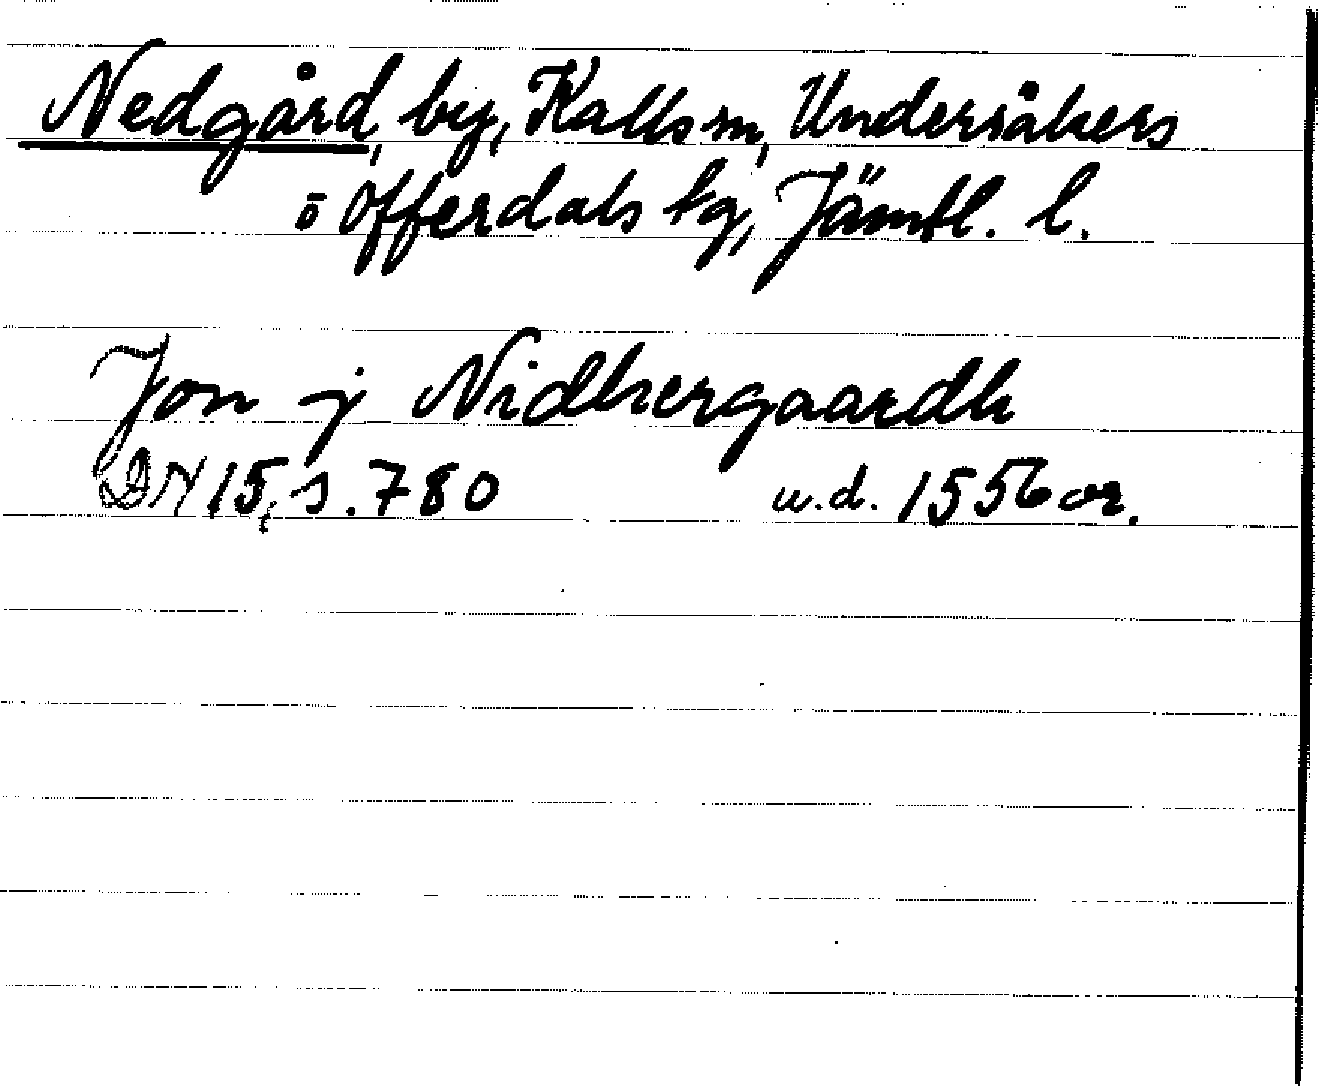 Nedgård, by, Kalls sn, Undersåkers
o Offerdals tg, Jämtl. l.
Jon j Nidhergaardh
DN 15, s. 780 u.d. 1556 or.